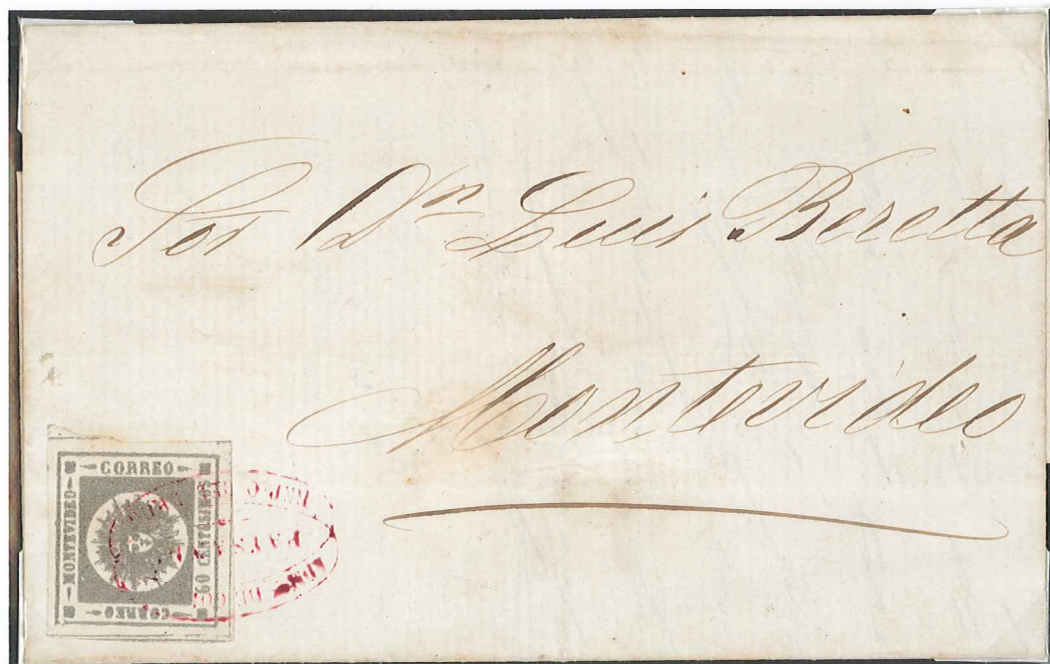 Sor Dn Luis Beretta
Montevideo
CORREO
MONTEVIDEO
60 CENTÉSIMOS
CORREO